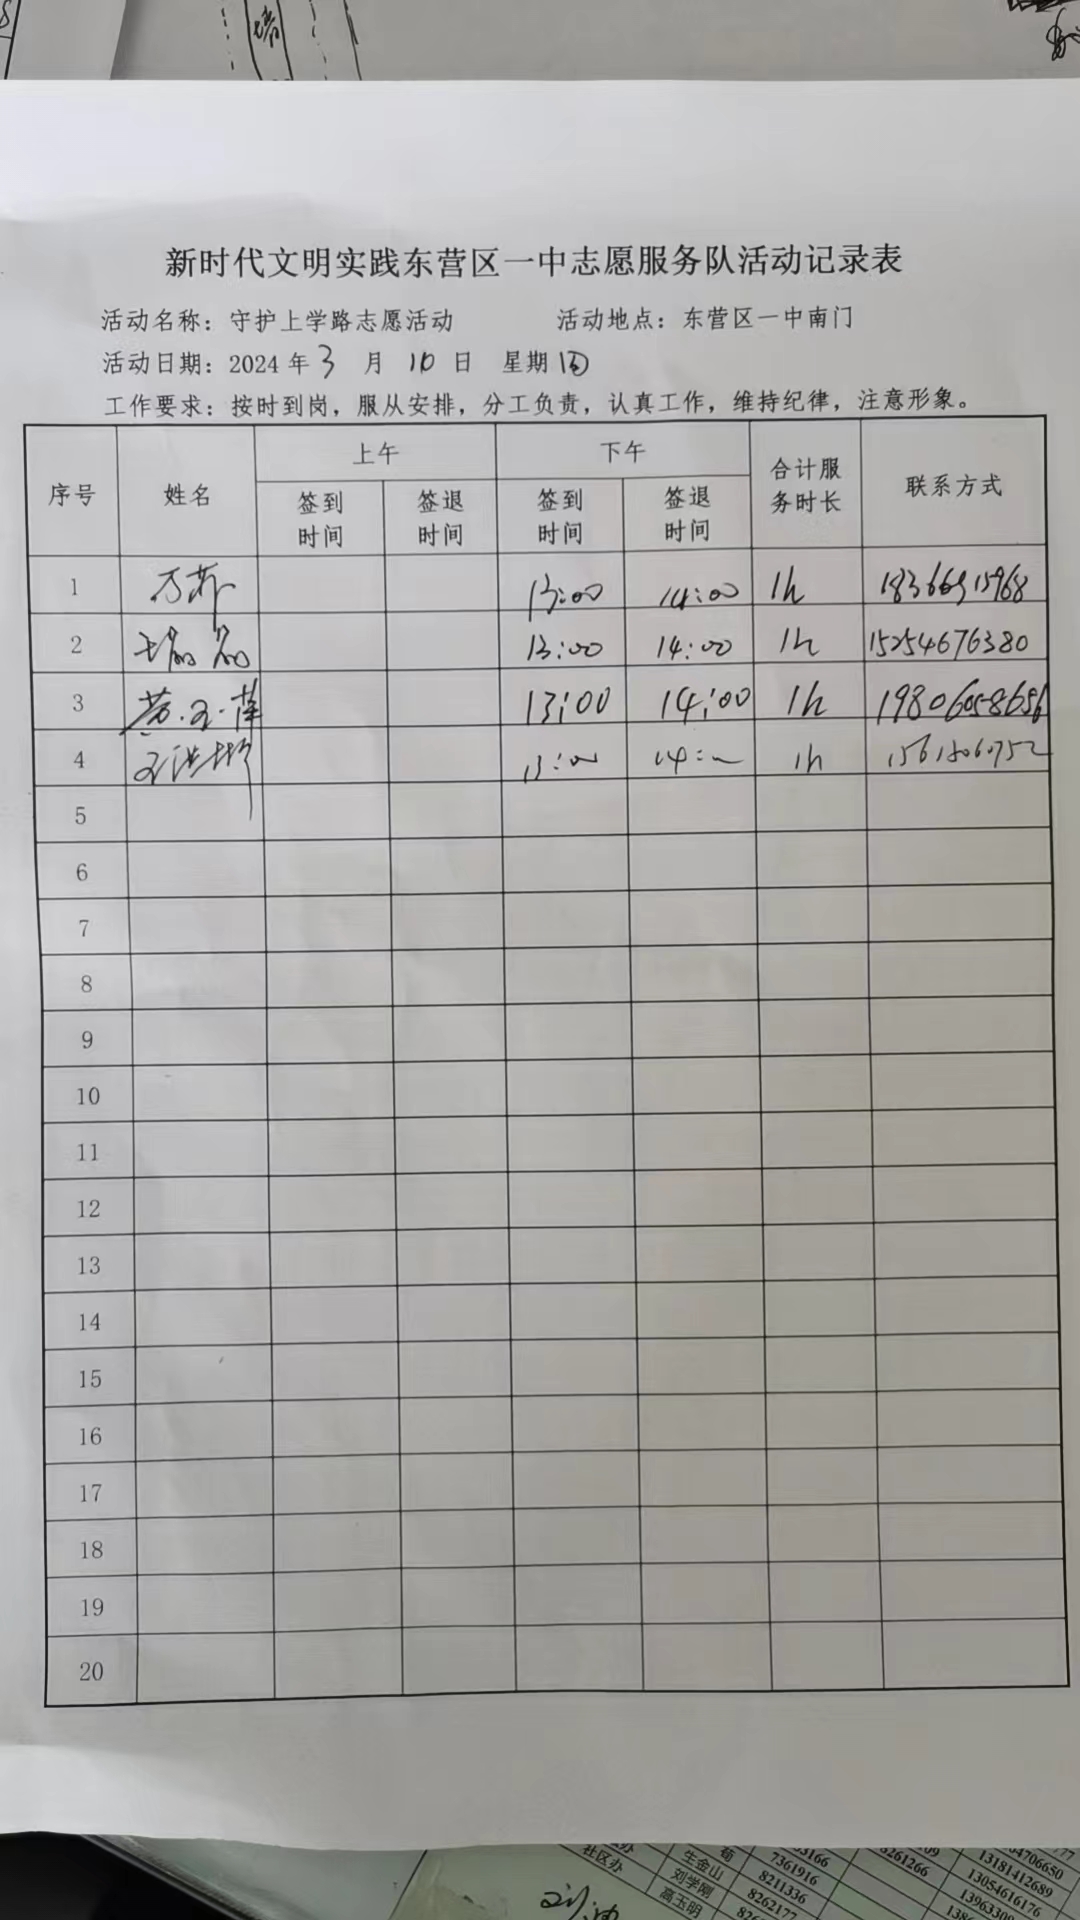 新时代文明实践东营区一中志愿服务队活动记录表
活动名称：守护上学路志愿活动 活动地点：东营区一中南门
活动日期：2024年3月10日 星期
工作要求：按时到岗，服从安排，分工负责，认真工作，维持纪律，注意形象。
序号 姓名 上午 下午 合计服务时长 联系方式
签到时间 签退时间 签到时间 签退时间
1 13:00 14:00 1h
2 13:00 14:00 1h 15254676380
3 13:00 14:00 1h 19806058656
4 1h
5
6
7
8
9
10
11
12
13
14
15
16
17
18
19
20
社区办 生金山 7361916 8261266 13181412689
刘学刚 8211336 13054616176
高玉明 8262177